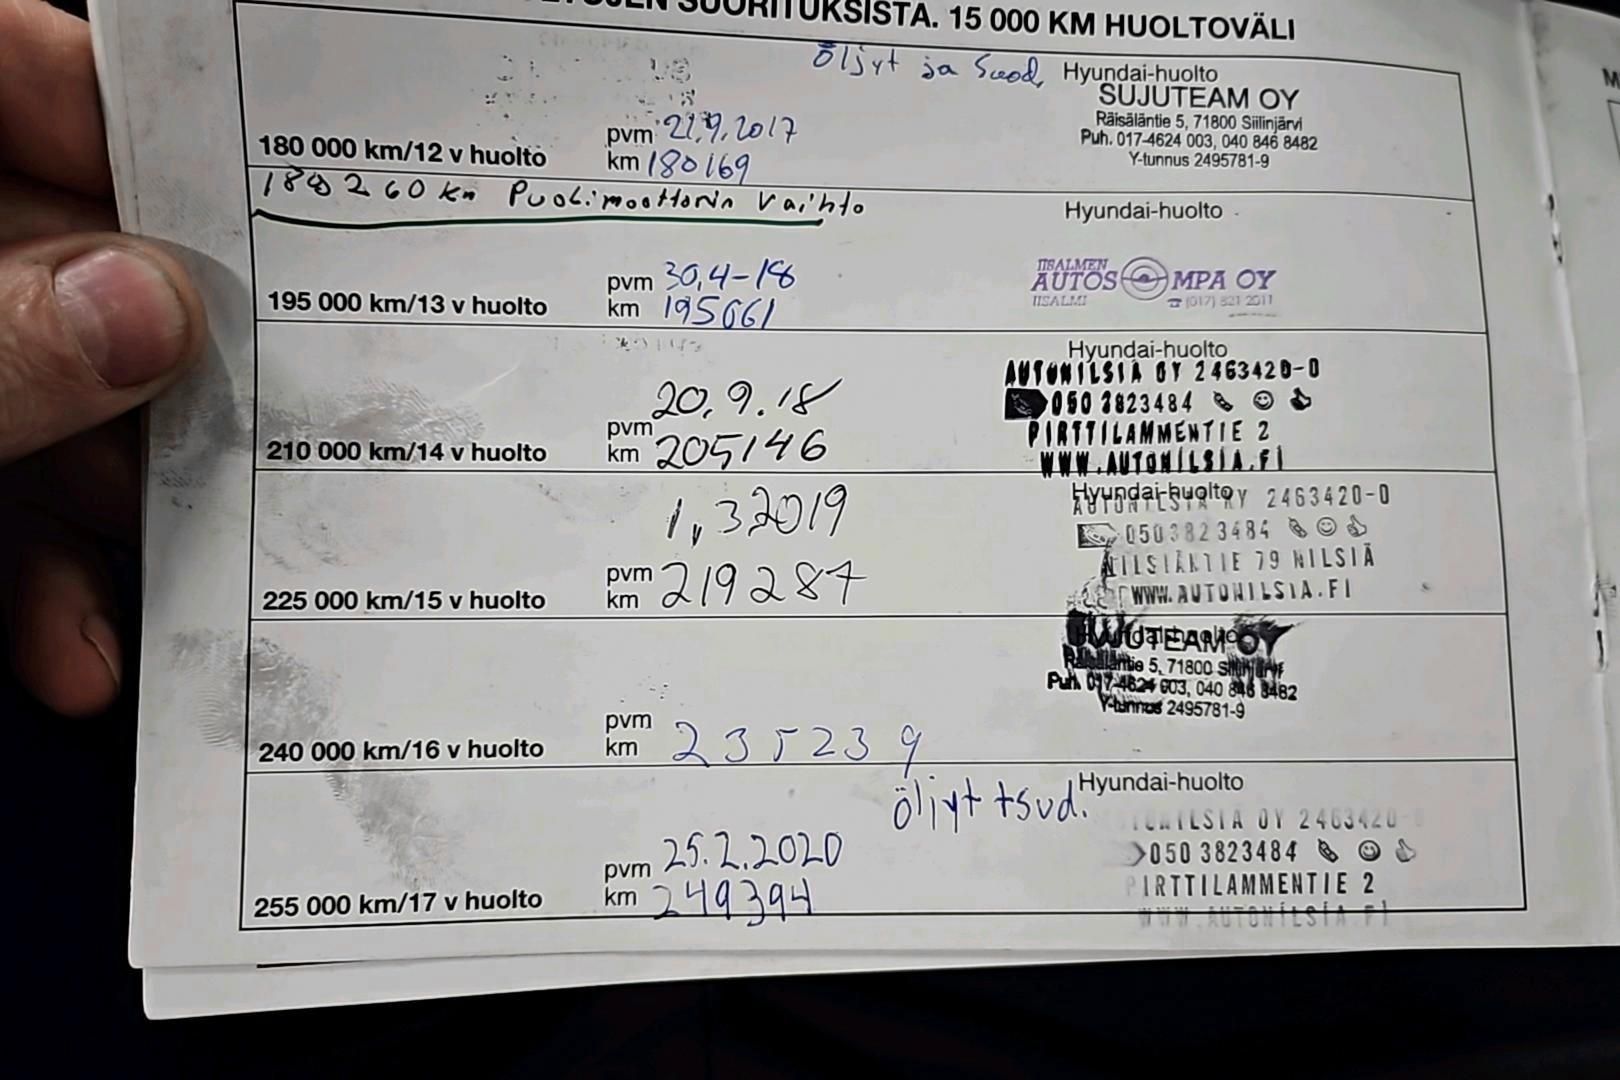 SUORITUKSISTA. 15 000 KM HUOLTOVÄLI
öljyt ja Suod,
Hyundai-huolto
SUJUTEAM OY
Räisäläntie 5, 71800 Siilinjärvi
Puh. 017-4624 003, 040 846 8482
Y-tunnus 2495781-9
180 000 km/12 v huolto
pvm 21.9.2017
km 180169
188260 km Puolimoottorin vaihto
Hyundai-huolto
IISALMEN
AUTOSOMPA OY
IISALMI (017) 821 2011
195 000 km/13 v huolto
pvm 30,4-18
km 195661
Hyundai-huolto
AUTONILSIÄ OY 2463420-0
050 3823484
PIRTTILAMMENTIE 2
WWW.AUTONILSIA.FI
210 000 km/14 v huolto
pvm 20.9.18
km 205146
Hyundai-huolto
AUTONILSIÄ OY 2463420-0
050 3823484
NILSIÄNTIE 79 NILSIÄ
WWW.AUTONILSIA.FI
225 000 km/15 v huolto
pvm 1,3 2019
km 219287
Hyundai-huolto
SUJUTEAM OY
Räisäläntie 5, 71800 Siilinjärvi
Puh. 017-4624 003, 040 846 8482
Y-tunnus 2495781-9
240 000 km/16 v huolto
pvm
km 235239
öljyt +sud.
Hyundai-huolto
AUTONILSIÄ OY 2463420-0
050 3823484
PIRTTILAMMENTIE 2
WWW.AUTONILSIA.FI
255 000 km/17 v huolto
pvm 25.2.2020
km 249394